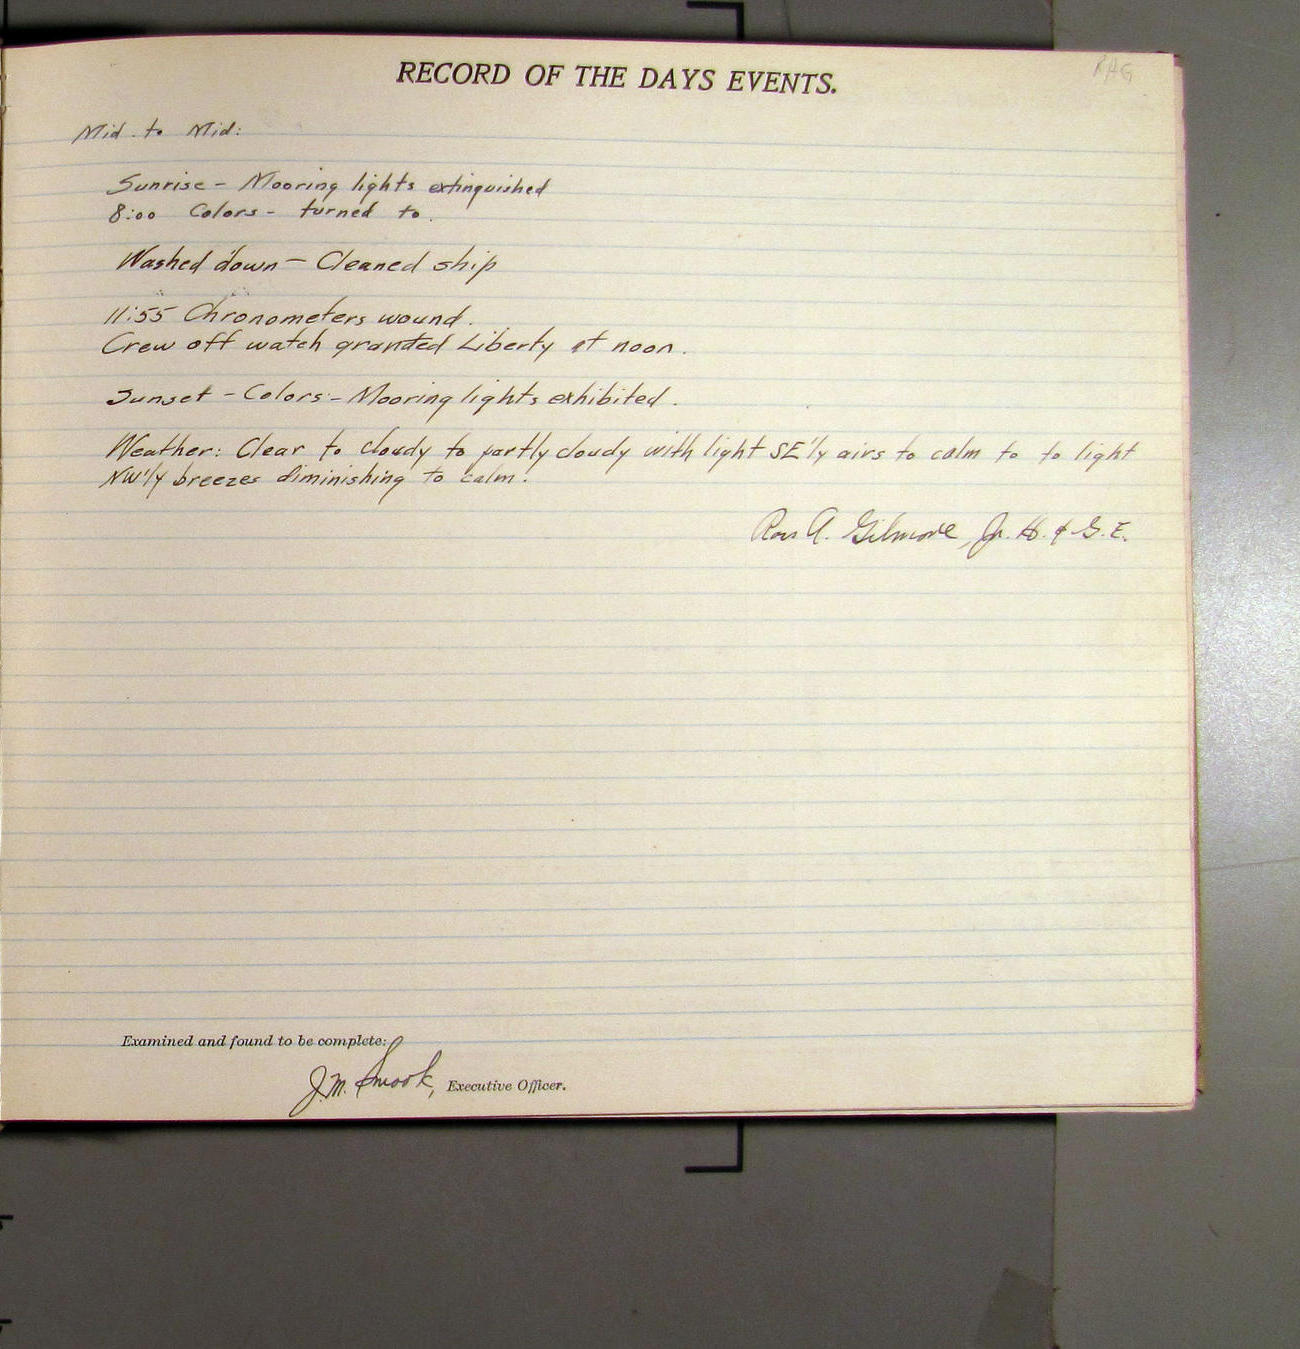 RECORD OF THE DAYS EVENTS.
RAG
Mid. to Mid:
Sunrise - Mooring lights extinguished
8:00 Colors - turned to.
Washed down - Cleaned ship
11:55 Chronometers wound.
Crew off watch granted Liberty at noon.
Sunset - Colors - Mooring lights exhibited.
Weather: Clear to cloudy to partly cloudy with light SE'ly airs to calm to to light
NW'ly breezes diminishing to calm.
Ross A. Gilmore, Jr. H. & G. E.
Examined and found to be complete:
J.M. Smook, Executive Officer.